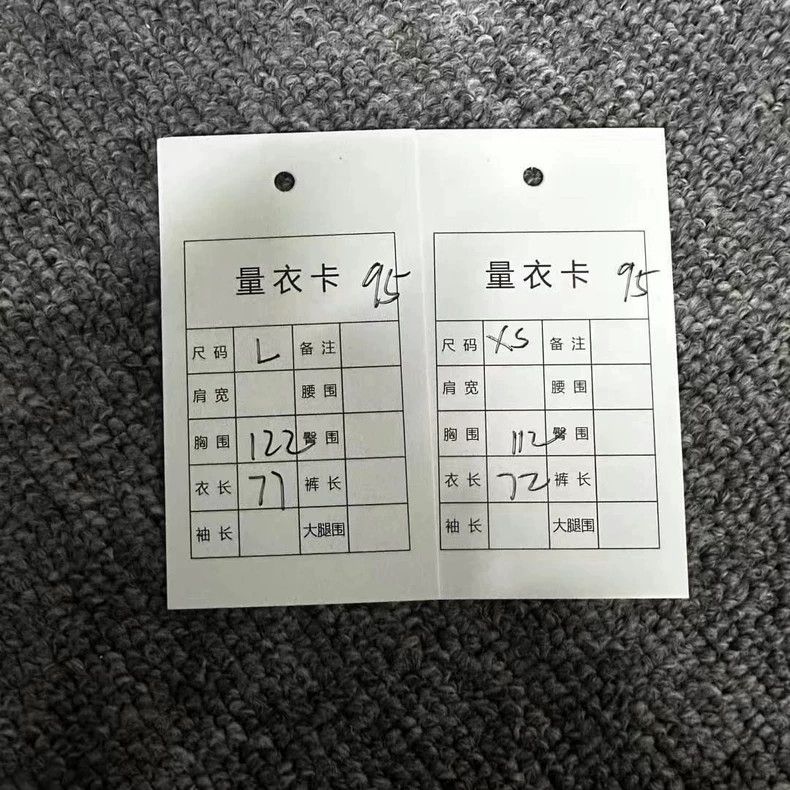 量衣卡 95
尺码 L 备注
肩宽 腰围
胸围 122 臀围
衣长 77 裤长
袖长 大腿围
量衣卡 95
尺码 XS 备注
肩宽 腰围
胸围 112 臀围
衣长 72 裤长
袖长 大腿围